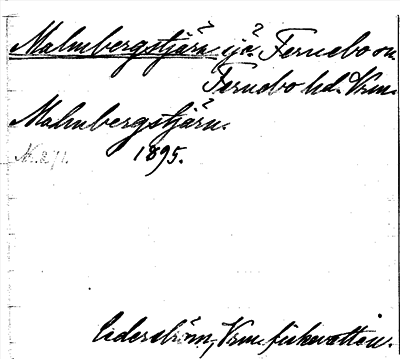 Malmbergstjärn sjö. Fernebo sn.
Fernebo hd. Vrm.
Malmbergstjärn.
1895.
Nr. 271.
Cederström, Vrm. fiskevatten.